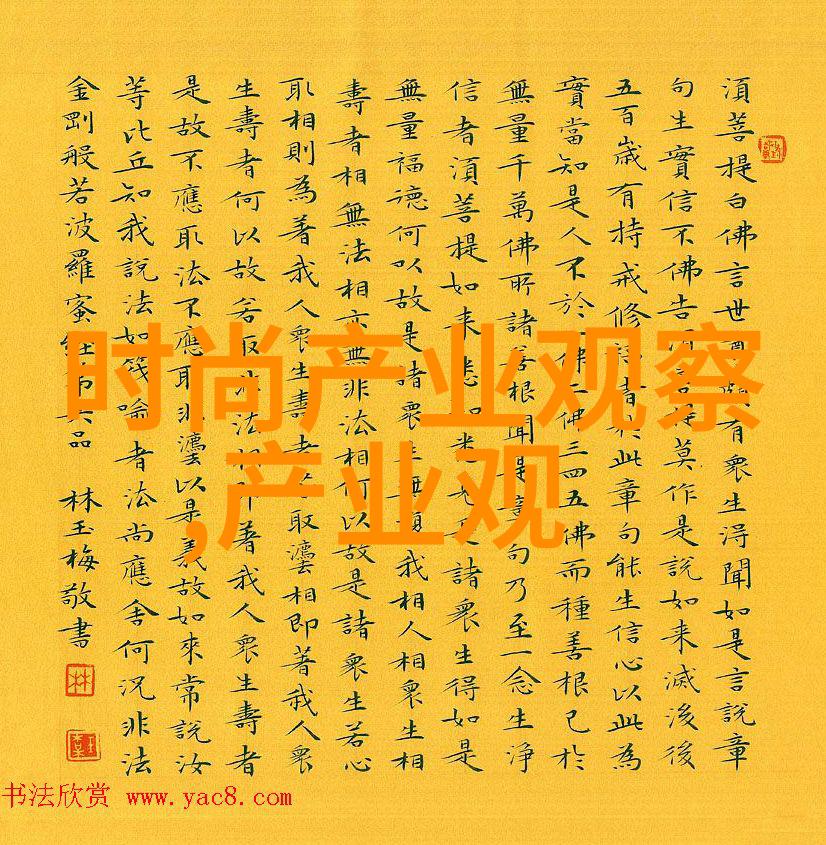 須菩提白佛言世尊頗有衆生得聞如是言說章
句生實信不佛告須菩提莫作是說如来滅後後
五百歲有持戒修福者於此章句能生信心以此為
實當知是人不於一佛二佛三四五佛而種善根已於
無量千萬佛所諸善根聞是章句乃至一念生淨
信者須菩提如来悉知悉見是諸衆生得如是
無量福德何以故是諸衆生無復我相人相衆生相
壽者相無法相亦無非法相何以故是諸衆生若心
取相則為著我人衆生壽者若取灋相即著我人衆
生壽者何以故若取非法相即著我人衆生壽者
是故不應取法不應取非灋以是義故如來常說汝
等比丘知我說法如筏喻者法尚應舍何況非法
金剛般若波羅蜜經第六品 林玉梅敬書
林
时尚产业观察
,产业观
书法欣赏 www.yac8.com